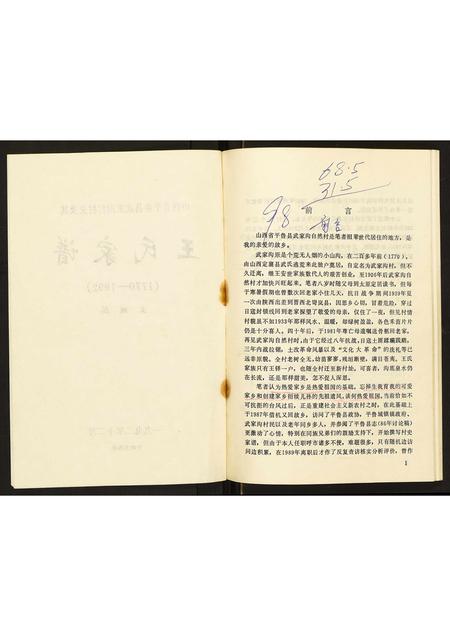 68.5
31.5
98
前言
前 言
山西省平鲁县武家沟自然村是笔者祖辈世代居住的地方，是
我的亲爱的故乡。
武家沟原是个荒无人烟的小山沟，在二百多年前（1770），
由山西定襄县武氏逃荒来此独户奠居，自定名为武家沟村，但不
久迁离，继王安世家族数代人的艰苦创业，至1926年后武家沟自
然村才加快兴旺起来。笔者八岁时随父母到太原定居读书，但每
于寒暑假期也曾数次回老家小住几天，抗日战争期间1939年至
一次由陕西出差到晋西北岢岚县，因思乡心切，冒着危险，穿过
日寇封锁线回到老家探望了敬爱的母亲，仅住了一夜，但见村情
村貌虽不如1933年那样风水、温暖，却绿树盈盈，各色禾苗片片
仍是十分喜人。四十年后，于1981年尊亡母遗嘱送骨骸回老家，
再见武家沟自然村时，由于它经过八年抗战，日寇土匪蹂躏践踏，
三年内战拉锯，土改革命风暴以及“文化大革命”的洗礼等已
远非原貌。全村老树全无，幼苗寥寥，残垣断壁，满目苍夷。王氏
家族只有王铎一户，也随全村迁至新村址。可喜者，沟底泉水仍
在长流，还是那样甜美，怎不促人深思。
笔者认为热爱家乡是热爱祖国的基础，忘掉生我育我的可爱
家乡和创建家乡相续儿孙的先祖遗风，谈何热爱祖国。当前恰如不
可抗拒的台风过后，正是重建社会主义新农村之时，在此基础上
于1987年借机又回故乡，访问了平鲁县政协，平鲁城镇镇政府，
武家沟村民以及老年同乡多人，并参阅了平鲁县志（86年讨论稿）
更激动了心情，特别在同族兄弟们的鼓励支持下，开始撰写村史
家谱，但由于本人任职呼市诸多不便，难题很多，只有随机边访
问边积累，在1989年离职后才作了反复查访核实分析评价，曾作
1
王 氏 家 谱
(1770—1992)